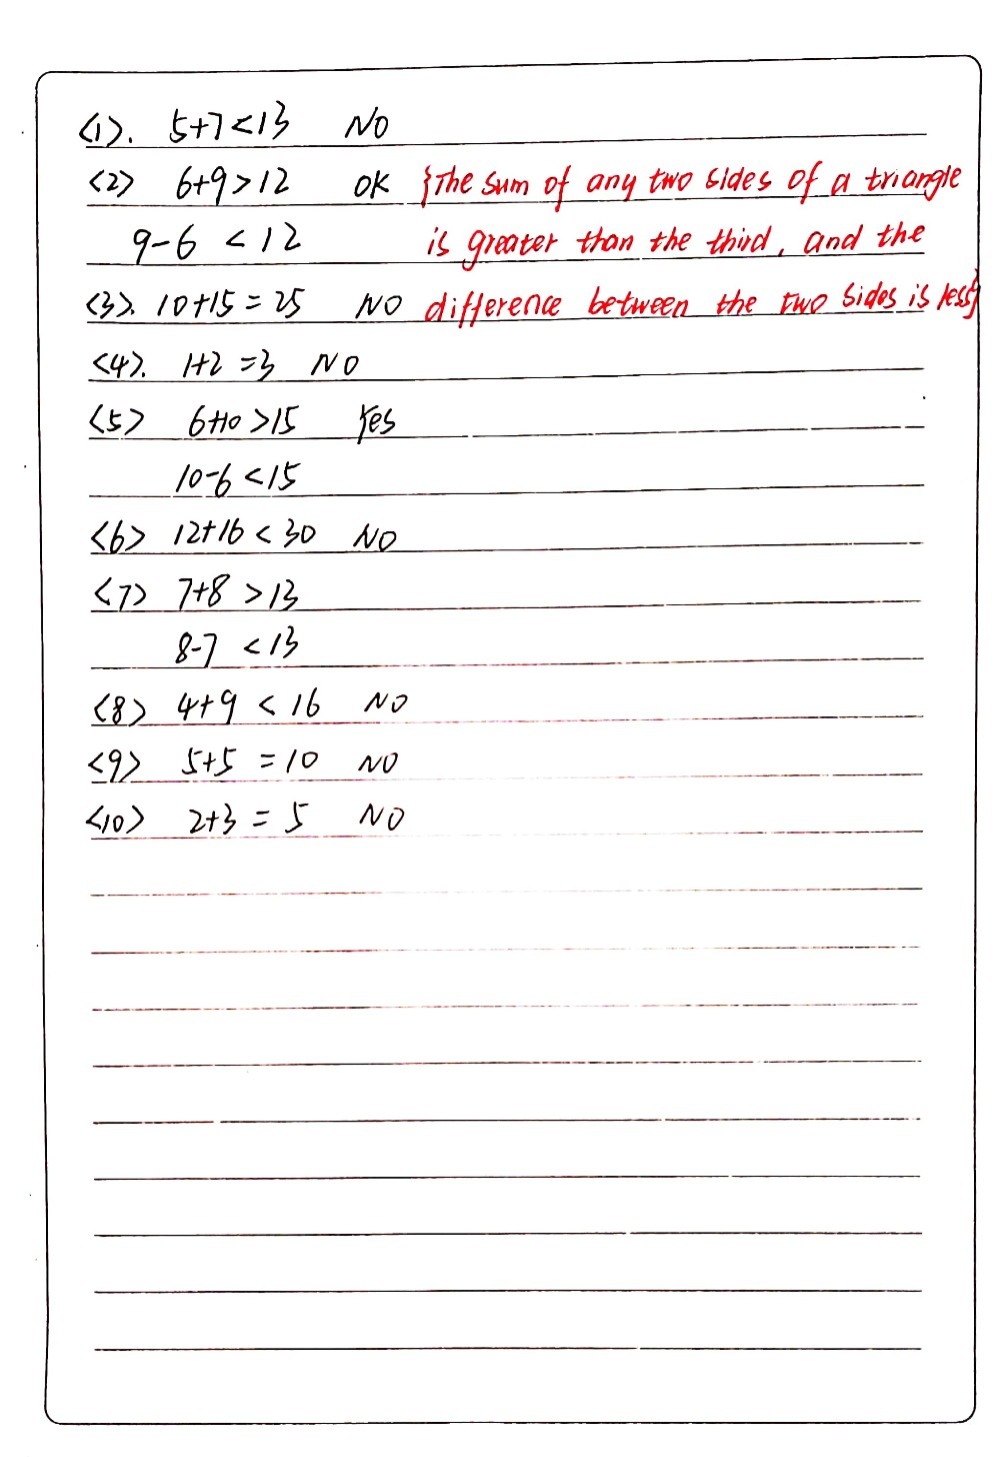 <1>. 5+7<13 NO
<2> 6+9>12 OK {The sum of any two sides of a triangle
9-6 <12 is greater than the third, and the
<3>. 10+15=25 NO difference between the two sides is less}
<4>. 1+2=3 NO
<5> 6+10>15 Yes
10-6<15
<6> 12+16<30 NO
<7> 7+8>13
8-7 <13
<8> 4+9<16 NO
<9> 5+5=10 NO
<10> 2+3=5 NO